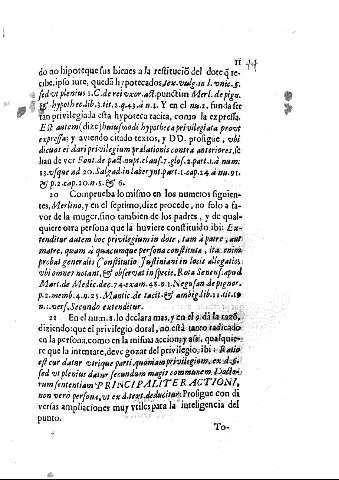 11
do no hipoteque sus bienes a la restitució del dote q̃ re-
cibe. ipso iure, quedã hypotecados, ex vulg. in l. vnic. §.
sed vt plenius 1. C. de rei vxor. act. punctim Merl. de pign.
& hypothec. lib. 3. tit. 2. q. 43. à n. 1. Y en el nu. 2. funda se
tan privilegiada esta hypoteca tacita, como la expressa.
Est autem (dize) huiusmodi hypotheca privilegiata prout
expressa; y aviendo citado textos, y DD. prosigue, vbi
dicuet ei dari privilegium prælationis contra anteriores, se
han de ver Font. de pact. nupt. claus. 7. glos. 2. part. 1. à num.
13. vsque ad 20. Salgad. in laber ynt. part. 1. cap. 24 à nu. 91.
& p. 2. cap. 20. n. 5. & 6.
20 Comprueba lo mismo en los numeros siguien-
tes, Merlino, y en el septimo, dize procede, no solo a fa-
vor de la muger, sino tambien de los padres, y de qual-
quiere otra persona que la huviere constituido, ibi: Ex-
tenditur autem hoc privilegium in dote, tam à patre, aut
matre, quam à quacumque persona constituta, ita. enim
probat generalis Constitutio Iustiniani in locis allegatis,
vbi omnes notant, & observat in specie. Rota Senens. apud
Mart. de Medic. dec. 74. exam. 48. n. 1. Negusan de pignor.
p. 2. memb. 4. n. 25. Mantic. de tacit. & ambig. lib. 11. tit. 19
n. 1. vers. Secundo extenditur.
21 En el num. 8. lo declara mas, y en el 9. dà la razõ,
diziendo: que el privilegio dotal, no està tanto radicado
en la persona, como en la misma accion; y assi, qualquie-
re que la intentare, deve gozar del privilegio, ibi: Ratio
est cur datur vtrique parti, quoniam privilegium, ex d. §.
sed vt plenius datur secundum magis communem. Docto-
rum sententiam PRINCIPALITER ACTIONI,
non verò personæ, vt ex d. text. deducitur; Prosigue con di-
versas ampliaciones muy vtiles para la inteligencia del
punto.
To-